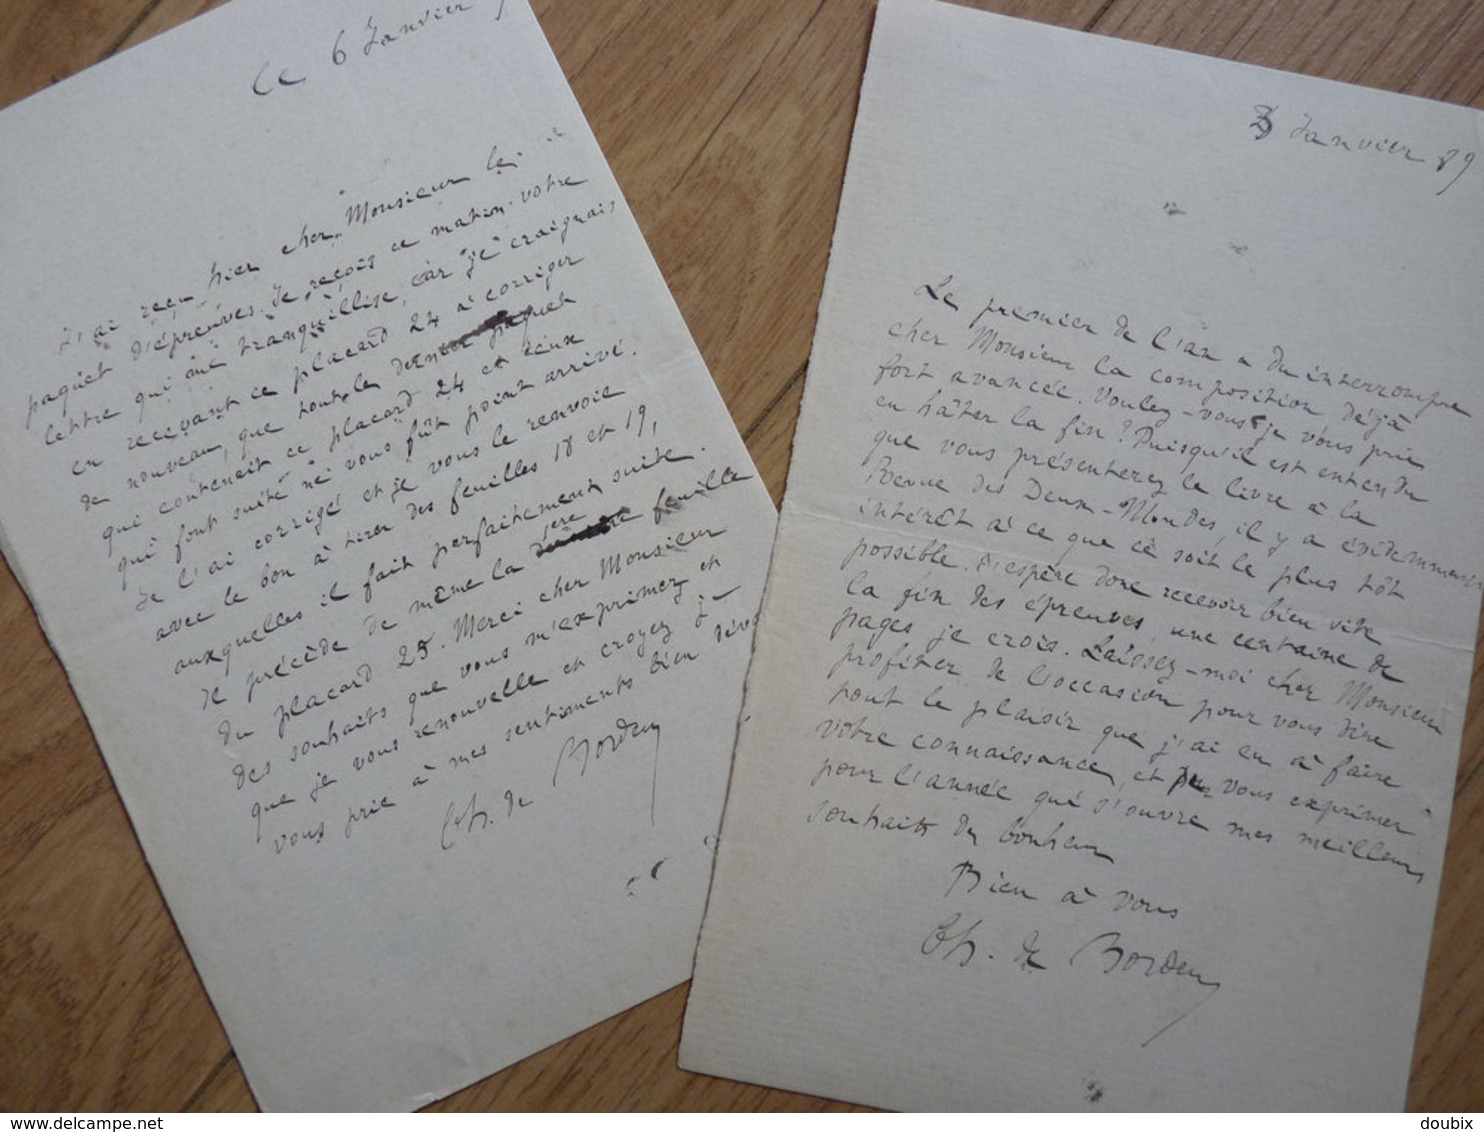 Le 6 Janvier
J'ai reçu hier cher Monsieur le
paquet d'épreuves. Je reçois ce matin votre
lettre qui me tranquillise, car je craignais
en recevant ce placard 24 à corriger
de nouveau, que tout le dernier paquet
qui contenait ce placard 24 et ceux
qui font suite ne vous fût point arrivé.
Je l'ai corrigé et je vous le renvoie
avec le bon à tirer des feuilles 18 et 19,
auxquelles il fait parfaitement suite.
Il précède de même la 1ère feuille
du placard 25. Merci cher Monsieur
des souhaits que vous m'exprimez et
que je vous renouvelle et croyez je
vous prie à mes sentiments bien
Ch. de Bordeu
3 Janvier 89
Le premier de l'an a dû interrompre
cher Monsieur la composition déjà
fort avancée. Voulez-vous je vous prie
en hâter la fin? Puisqu'il est entendu
que vous présenterez le livre à la
Revue des Deux-Mondes, il y a évidemment
intérêt à ce que ce soit le plus tôt
possible. J'espère donc recevoir bien vite
la fin des épreuves, une centaine de
pages je crois. Laissez-moi cher Monsieur
profiter de l'occasion pour vous dire
tout le plaisir que j'ai eu à faire
votre connaissance, et pour vous exprimer
pour l'année qui s'ouvre mes meilleurs
souhaits de bonheur
Bien à vous
Ch. de Bordeu
www.delcampe.net
doubix